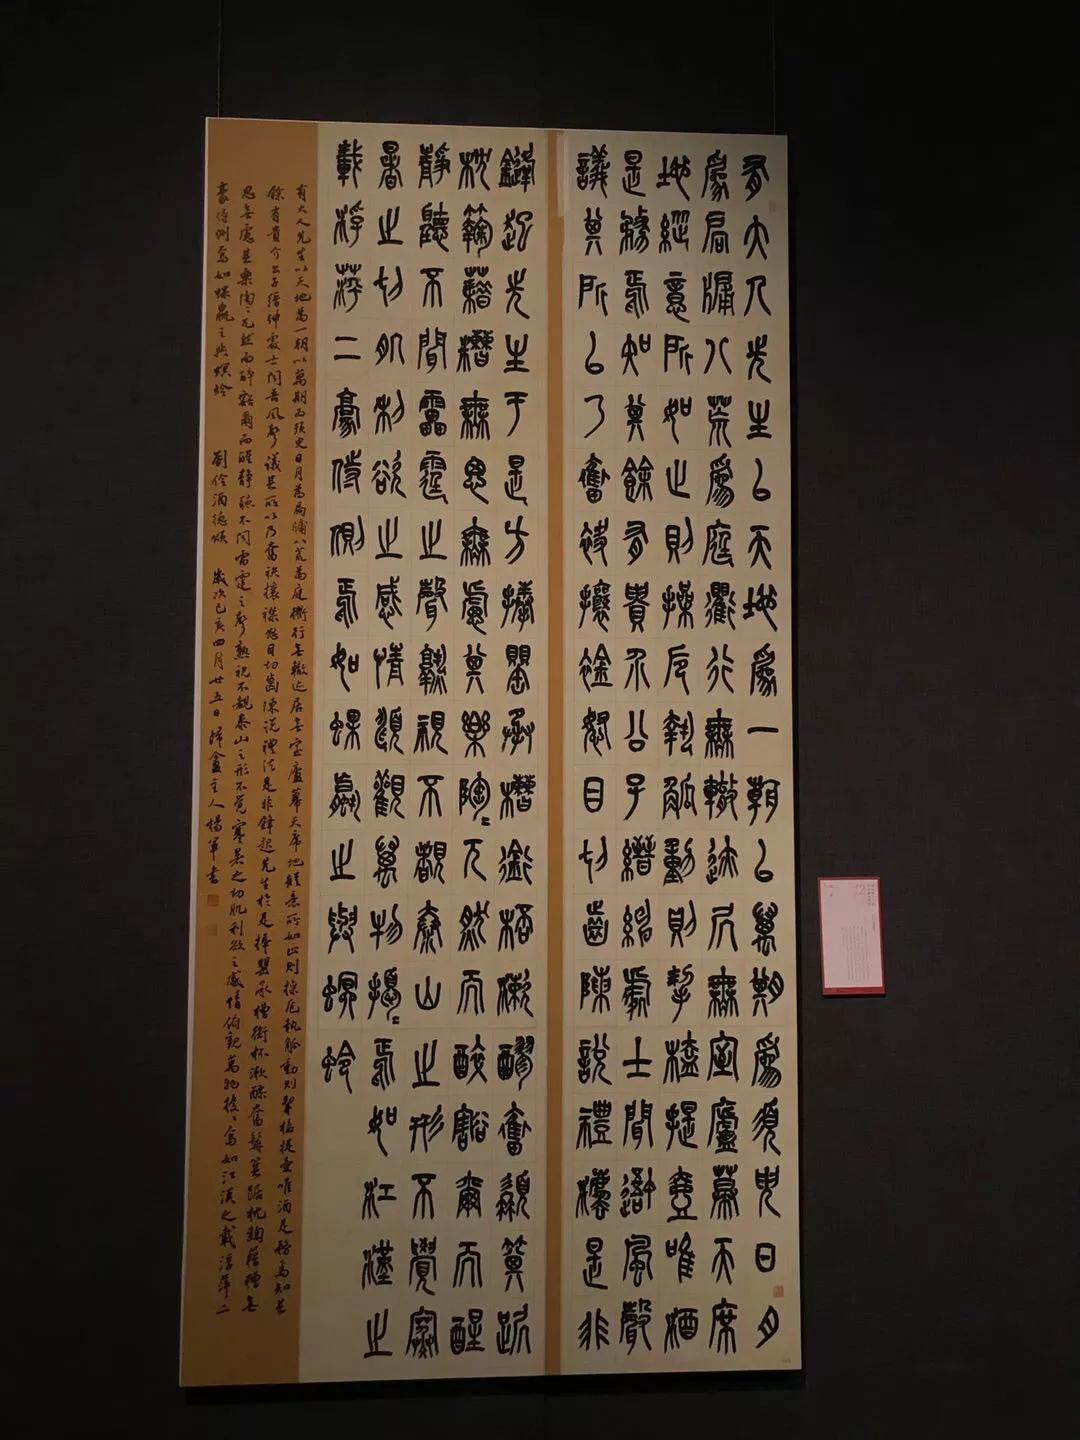 有大人先生以天地為一朝以萬期為須臾日月
為扃牖八荒為庭衢行無轍迹居無室廬幕天席
地縱意所如止則操卮執觚動則挈榼提壺唯酒
是務焉知其餘有貴介公子縉紳處士聞吾風聲
議其所以乃奮袂攘襟怒目切齒陳說禮法是非
鋒起先生于是方捧罌承槽銜杯漱醪奮髯箕踞
枕麴藉糟無思無慮其樂陶〻兀然而醉豁爾而醒
靜聽不聞雷霆之聲熟視不覩泰山之形不覺寒
暑之切肌利欲之感情俯觀萬物擾〻焉如江漢之
載浮萍二豪侍側焉如蜾蠃之與螟蛉
有大人先生以天地為一朝以萬期為須臾日月為扃牖八荒為庭衢行無轍迹居無室廬幕天席地縱意所如止則操卮執觚動則挈榼提壺唯酒是務焉知其
餘有貴介公子縉紳處士聞吾風聲議其所以乃奮袂攘襟怒目切齒陳說禮法是非鋒起先生於是捧罌承槽銜杯漱醪奮髯箕踞枕麴藉糟無
思無慮其樂陶〻兀然而醉豁爾而醒靜聽不聞雷霆之聲熟視不覩泰山之形不覺寒暑之切肌利欲之感情俯觀萬物擾〻焉如江漢之載浮萍二
豪侍側焉如蜾蠃之與螟蛉 劉伶酒德頌 歲次己亥四月廿五日 主人楊軍書